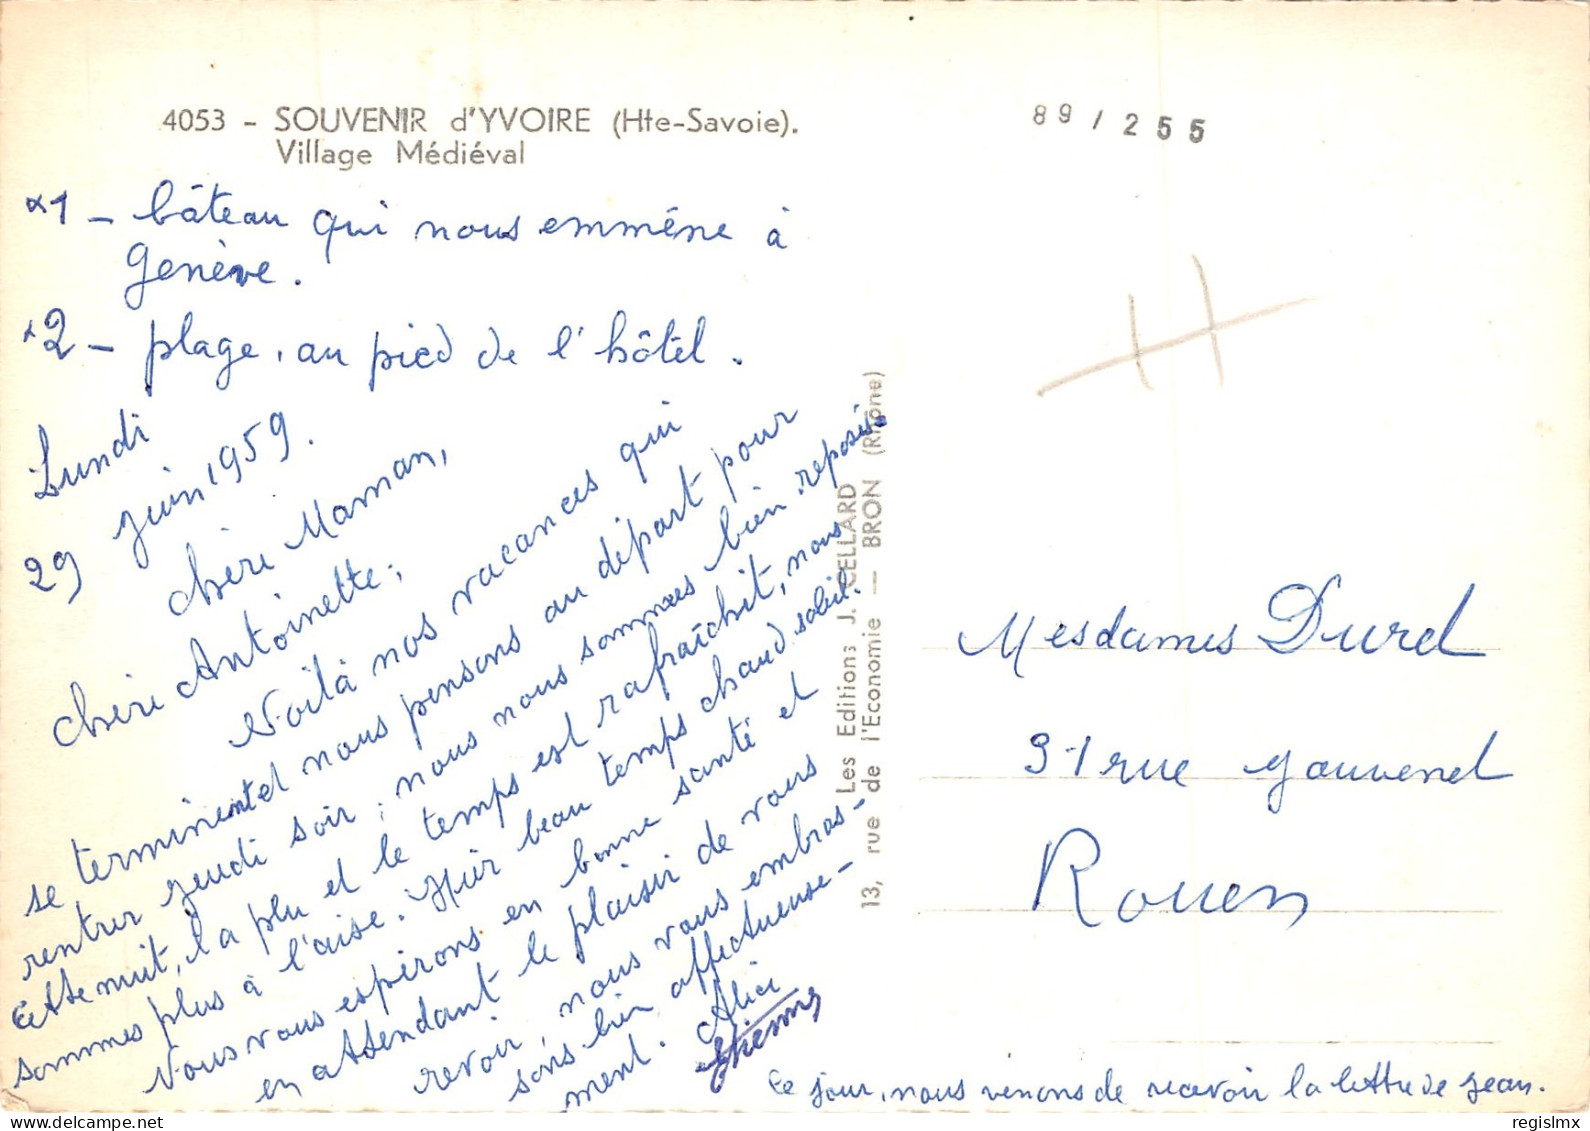 4053 - SOUVENIR d'YVOIRE (Hte-Savoie).
Village Médiéval
89 / 255
x1 - bâteau qui nous emmène à
Genève.
x2 - plage, au pied de l'hôtel.
Lundi
29 juin 1959.
Chère Maman,
Chère Antoinette,
Voilà nos vacances qui
se terminent et nous pensons au départ pour
rentrer jeudi soir, nous nous sommes bien reposés
Cette nuit, la plu et le temps est rafraîchit, nous
sommes plus à l'aise. Hier beau temps chaud soleil.
Nous vous espérons en bonne santé et
en attendant le plaisir de vous
revoir, nous vous embras-
sons bien affectueuse-
ment. Alice
Etienne
Ce jour, nous venons de recevoir la lettre de Jean.
Les Editions J. CELLARD
13, rue de l'Economie — BRON (Rhône)
Mesdames Durel
31 rue Jouvenel
Rouen
regislmx